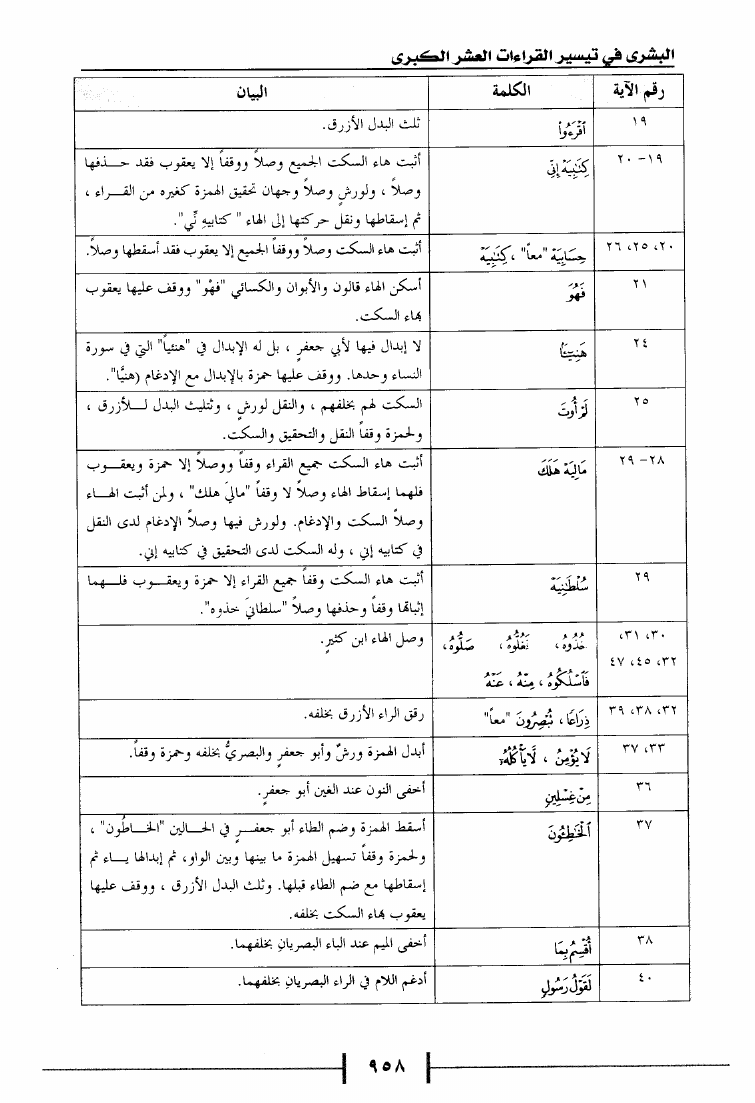 البشرى في تيسير القراءات العشر الكبرى
رقم الآية الكلمة البيان
١٩ ٱقْرَءُواْ ثلث البدل الأزرق.
١٩-٢٠ كِتَٰبِيَهْ إِنِّي أثبت هاء السكت الجميع وصلاً ووقفاً إلا يعقوب فقد حـــذفها
وصلاً ، ولورشٍ وصلاً وجهان تحقيق الهمزة كغيره من القـــراء ،
ثم إسقاطها ونقل حركتها إلى الهاء " كتابيهِ نِّي".
٢٠، ٢٥، ٢٦ حِسَابِيَهْ "معاً" ، كِتَٰبِيَهْ أثبت هاء السكت وصلاً ووقفاً الجميع إلا يعقوب فقد أسقطها وصلاً.
٢١ فَهُوَ أسكن الهاء قالون والأبوان والكسائي "فهْو" ووقف عليها يعقوب
بهاء السكت.
٢٤ هَنِيٓـَٔۢا لا إبدال فيها لأبي جعفرٍ ، بل له الإبدال في "هنئياً" التي في سورة
النساء وحدها. ووقف عليها حمزة بالإبدال مع الإدغام (هنيًّا".
٢٥ لَمْ أُوتَ السكت لهم بخلفهم ، والنقل لورشٍ ، وتثليث البدل لـــلأزرق ،
ولحمزة وقفاً النقل والتحقيق والسكت.
٢٨-٢٩ مَالِيَهْ هَلَكَ أثبت هاء السكت جميع القراء وقفاً ووصلاً إلا حمزة ويعقـــوب
فلهما إسقاط الهاء وصلاً لا وقفاً "ماليَ هلك" ، ولمن أثبت الهـــاء
وصلاً السكت والإدغام. ولورش فيها وصلاً الإدغام لدى النقل
في كتابيه إني ، وله السكت لدى التحقيق في كتابيه إني.
٢٩ سُلْطَٰنِيَهْ أثبت هاء السكت وقفاً جميع القراء إلا حمزة ويعقـــوب فلـــهما
إثباتها وقفاً وحذفها وصلاً "سلطانيَ خذوه".
٣٠، ٣١، خُذُوهُ، فَغُلُّوهُ، صَلُّوهُ، وصل الهاء ابن كثيرٍ.
٣٢، ٤٥، ٤٧ فَٱسْلُكُوهُ، مِنْهُ، عَنْهُ
٣٢، ٣٨، ٣٩ ذِرَاعًا، تُبْصِرُونَ "معاً" رقق الراء الأزرق بخلفه.
٣٣، ٣٧ لَا يُؤْمِنُ ، لَّا يَأْكُلُهُۥٓ أبدل الهمزة ورشٌ وأبو جعفرٍ والبصريُّ بخلفه وحمزة وقفاً.
٣٦ مِنْ غِسْلِينٍ أخفى النون عند الغين أبو جعفرٍ.
٣٧ ٱلْخَٰطِـُٔونَ أسقط الهمزة وضم الطاء أبو جعفـــرٍ في الحـــالين "الخـــاطُون" ،
ولحمزة وقفاً تسهيل الهمزة ما بينها وبين الواو، ثم إبدالها يـــاء ثم
إسقاطها مع ضم الطاء قبلها. وثلث البدل الأزرق ، ووقف عليها
يعقوب بهاء السكت بخلفه.
٣٨ أُقْسِمُ بِمَا أخفى الميم عند الباء البصريانِ بخلفهما.
٤٠ لَقَوْلُ رَسُولٍ أدغم اللام في الراء البصريانِ بخلفهما.
٩٥٨